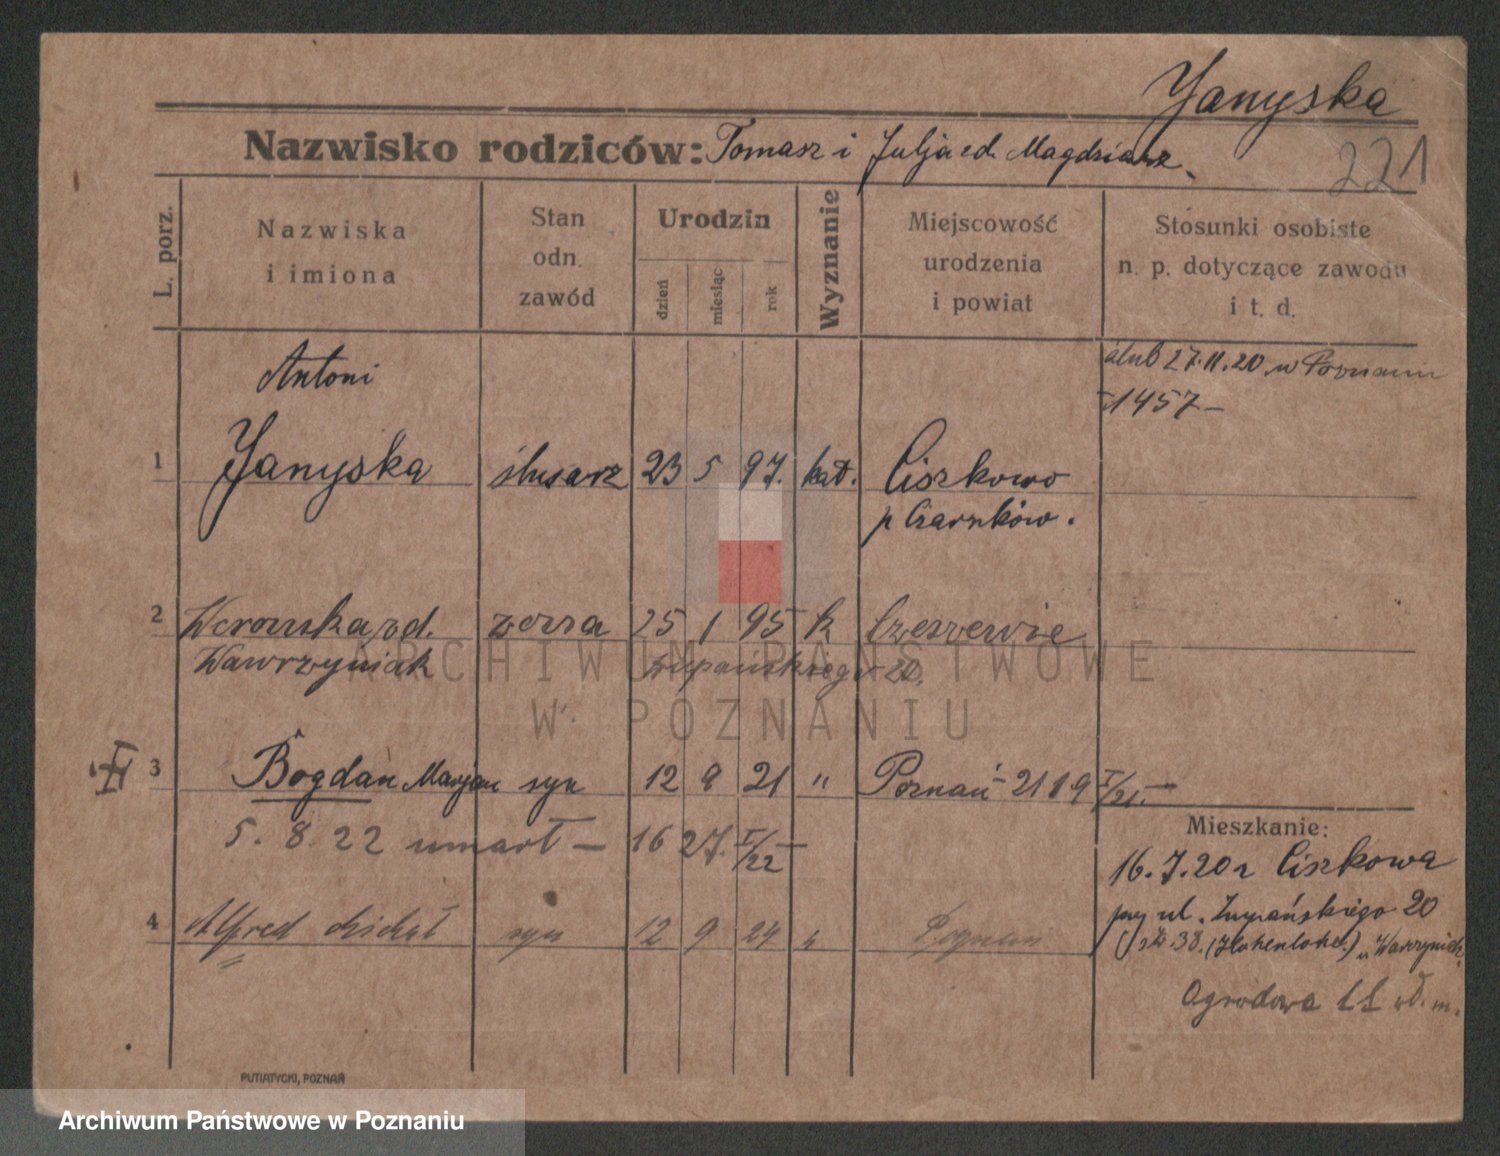 Yanyska
Nazwisko rodziców: Tomasz i Julja zd. Magdziarz
221
L. porz.
Nazwiska
i imiona
Stan
odn.
zawód
Urodzin
dzień
miesiąc
rok
Wyznanie
Miejscowość
urodzenia
i powiat
Stosunki osobiste
n. p. dotyczące zawodu
i t. d.
Antoni
ślub 27.11.20 w Poznaniu
1457
1 Yanyska ślusarz 23 5 97. kat. Ciszkowo
p Czarnków.
2 Weronska zd. żona 25 1 95 k
Wawrzyniak 20.
3 Bogdan Marjan syn 12 9 21 " Poznań
5. 8. 22 umarł – 16 27.
Mieszkanie:
16.7.20 z Ciszkowa
przy ul. Żupańskiego 20
38. (Hohenlohe.) u Wawrzyniak
4 Alfred Michał syn 12 9 24 " Poznań
Ogrodowa 11
PUTIATYCKI, POZNAŃ
ARCHIWUM PAŃSTWOWE
W POZNANIU
Archiwum Państwowe w Poznaniu